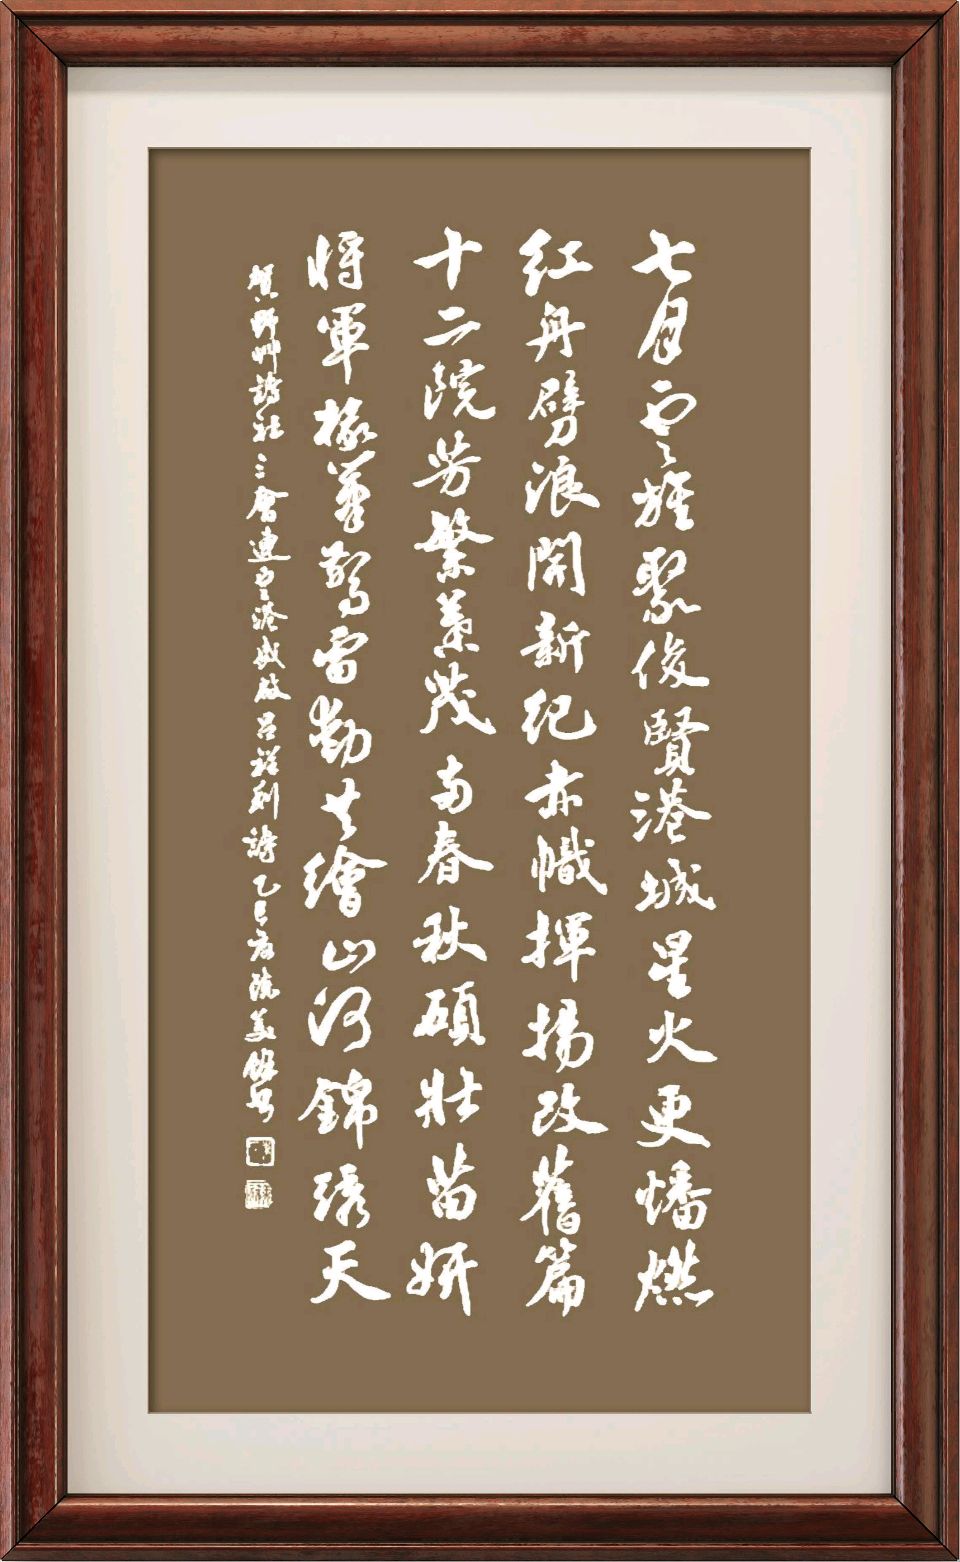 七月雲旌聚俊賢港城星火更燔燃
紅舟劈浪開新紀赤幟揮揚改舊篇
十二院芳繁葉茂两春秋碩壯苗妍
將軍椽筆驚雷動共繪山河錦綉天
賀野艸詩社三會連雲港盛啟呂祥利詩乙巳流美書